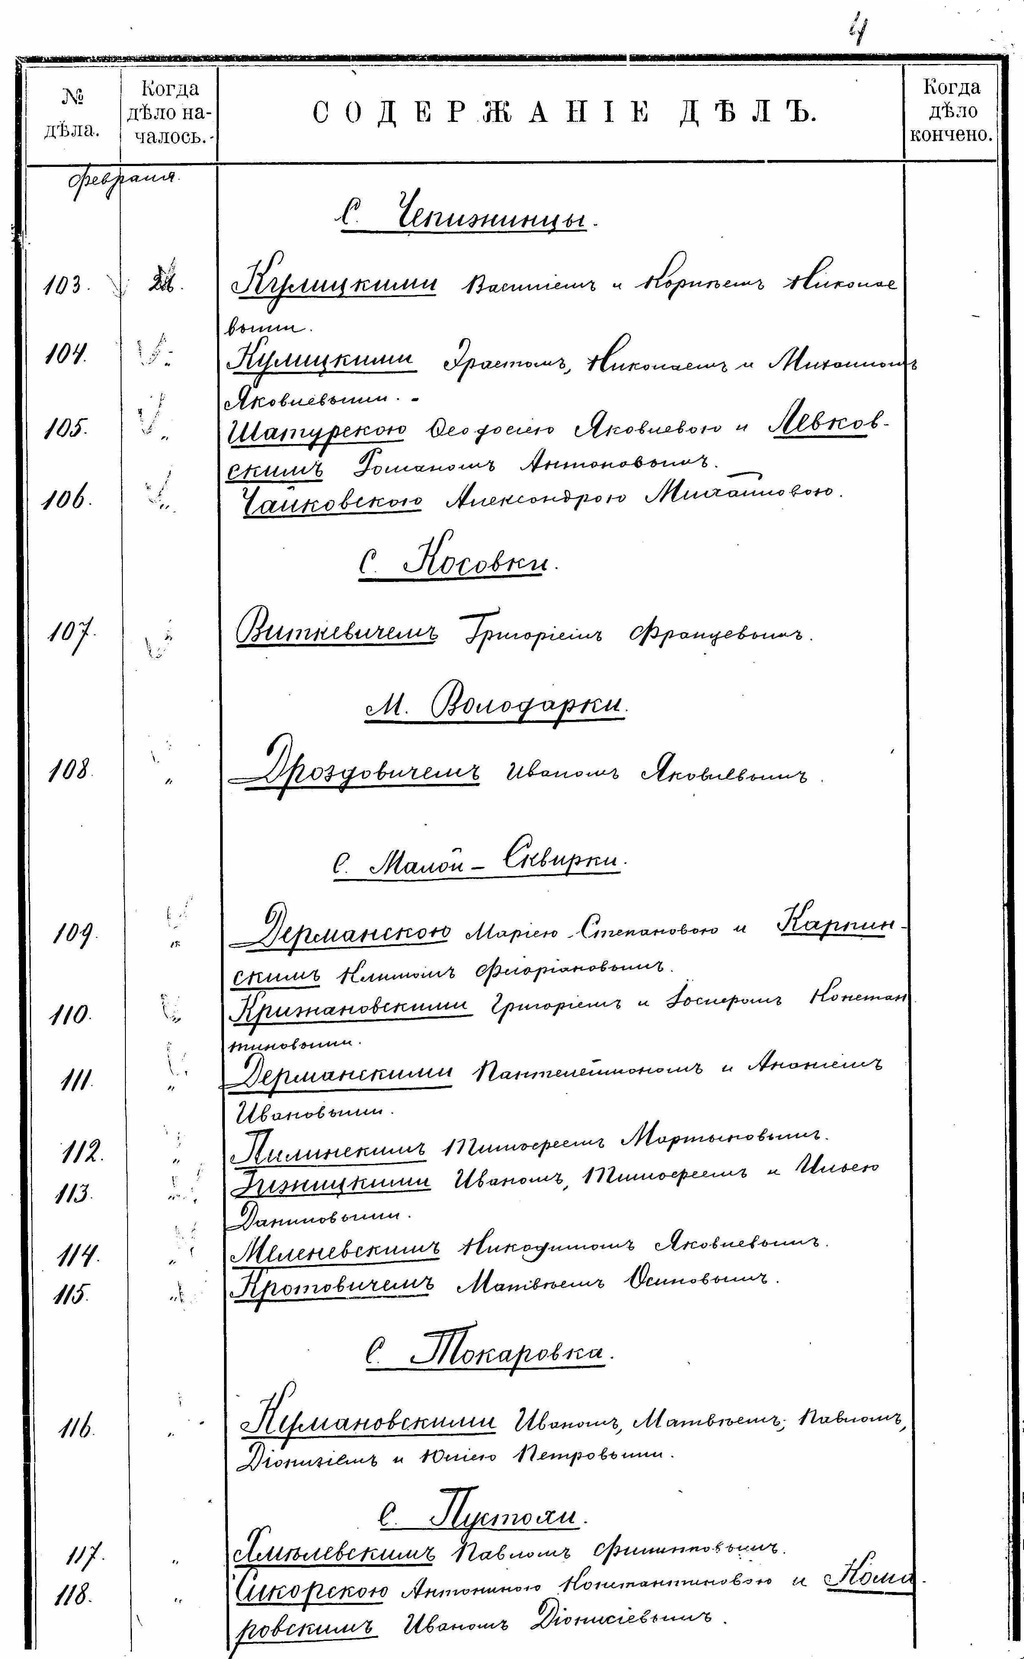 4
№ дѣла.
Когда дѣло на-чалось.
СОДЕРЖАНІЕ ДѢЛЪ.
Когда дѣло кончено.
Февраля.
С. Чепижинцы.
103. 28. Кулицкими Василіемъ и Корнѣемъ Николае
выми.
104. „ Кулицкими Эрастомъ, Николаемъ и Михаиломъ
Яковлевыми.
105. „ Шатурскою Ѳеодосіею Яковлевою и Левков-
скимъ Романомъ Антоновымъ.
106. „ Чайковскою Александрою Михайловою.
С. Косовки.
107. „ Виткевичемъ Григоріемъ Францевымъ.
М. Володарки.
108. „ Дроздовичемъ Иваномъ Яковлевымъ.
С. Малой-Сквирки.
109. „ Дерманскою Маріею Степановою и Карпин-
скимъ Климомъ Флоріановымъ.
110. „ Крижановскими Григоріемъ и Іосифомъ Констан
тиновыми.
111. „ Дерманскими Пантелеймономъ и Ананіемъ
Ивановыми.
112. „ Пилинскимъ Тимофеемъ Мартыновымъ.
113. „ Гижицкими Иваномъ, Тимофеемъ и Ильею
Даниловыми.
114. „ Меленевскимъ Никодимомъ Яковлевымъ.
115. „ Кротовичемъ Матвѣемъ Осиповымъ.
С. Токаровка.
116. „ Кумановскими Иваномъ, Матвѣемъ, Павломъ,
Діонизіемъ и Юліею Петровыми.
С. Пустохи.
117. „ Хмѣлевскимъ Павломъ Филипповымъ.
118. „ Сикорскою Антониною Константиновою и Кома-
ровскимъ Иваномъ Діонисіевымъ.